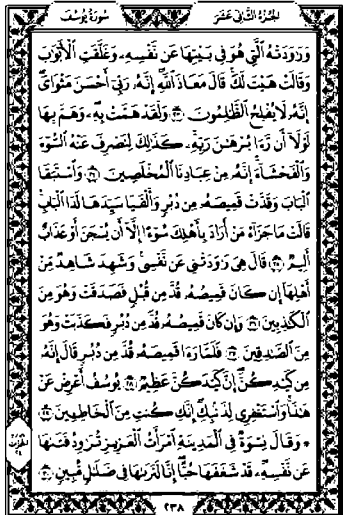 الجزء الثاني عشر سورة يوسف
وَرَٰوَدَتْهُ ٱلَّتِى هُوَ فِى بَيْتِهَا عَن نَّفْسِهِۦ وَغَلَّقَتِ ٱلْأَبْوَٰبَ
وَقَالَتْ هَيْتَ لَكَ ۚ قَالَ مَعَاذَ ٱللَّهِ ۖ إِنَّهُۥ رَبِّىٓ أَحْسَنَ مَثْوَاىَ ۖ
إِنَّهُۥ لَا يُفْلِحُ ٱلظَّٰلِمُونَ ٢٣ وَلَقَدْ هَمَّتْ بِهِۦ ۖ وَهَمَّ بِهَا
لَوْلَآ أَن رَّءَا بُرْهَٰنَ رَبِّهِۦ ۚ كَذَٰلِكَ لِنَصْرِفَ عَنْهُ ٱلسُّوٓءَ
وَٱلْفَحْشَآءَ ۚ إِنَّهُۥ مِنْ عِبَادِنَا ٱلْمُخْلَصِينَ ٢٤ وَٱسْتَبَقَا
ٱلْبَابَ وَقَدَّتْ قَمِيصَهُۥ مِن دُبُرٍ وَأَلْفَيَا سَيِّدَهَا لَدَا ٱلْبَابِ ۚ
قَالَتْ مَا جَزَآءُ مَنْ أَرَادَ بِأَهْلِكَ سُوٓءًا إِلَّآ أَن يُسْجَنَ أَوْ عَذَابٌ
أَلِيمٌ ٢٥ قَالَ هِىَ رَٰوَدَتْنِى عَن نَّفْسِى ۚ وَشَهِدَ شَاهِدٌ مِّنْ
أَهْلِهَآ إِن كَانَ قَمِيصُهُۥ قُدَّ مِن قُبُلٍ فَصَدَقَتْ وَهُوَ مِنَ
ٱلْكَٰذِبِينَ ٢٦ وَإِن كَانَ قَمِيصُهُۥ قُدَّ مِن دُبُرٍ فَكَذَبَتْ وَهُوَ
مِنَ ٱلصَّٰدِقِينَ ٢٧ فَلَمَّا رَءَا قَمِيصَهُۥ قُدَّ مِن دُبُرٍ قَالَ إِنَّهُۥ
مِن كَيْدِكُنَّ ۖ إِنَّ كَيْدَكُنَّ عَظِيمٌ ٢٨ يُوسُفُ أَعْرِضْ عَنْ
هَٰذَا ۚ وَٱسْتَغْفِرِى لِذَنۢبِكِ ۖ إِنَّكِ كُنتِ مِنَ ٱلْخَاطِـِٔينَ ٢٩
۞ وَقَالَ نِسْوَةٌ فِى ٱلْمَدِينَةِ ٱمْرَأَتُ ٱلْعَزِيزِ تُرَٰوِدُ فَتَىٰهَا
عَن نَّفْسِهِۦ ۖ قَدْ شَغَفَهَا حُبًّا ۖ إِنَّا لَنَرَىٰهَا فِى ضَلَٰلٍ مُّبِينٍ ٣٠
٢٣٨